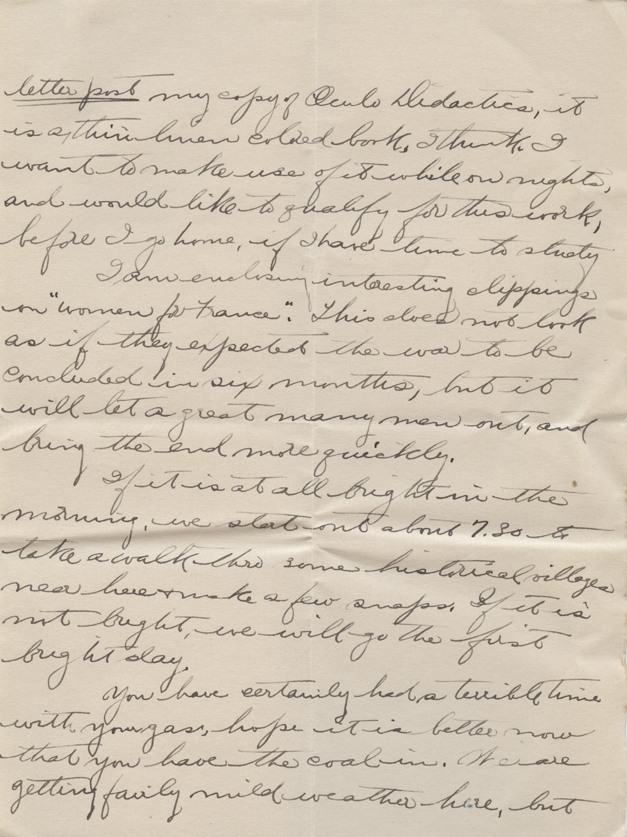 letter post my copy of Oculo Didactics, it
is a thin linen colored book, I think. I
want to make use of it while on nights,
and would like to qualify for this work,
before I go home, if I have time to study
I am enclosing interesting clippings
on "women for France". This does not look
as if they expected the war to be
concluded in six months, but it
will let a great many men out, and
bring the end more quickly.
If it is at all bright in the
morning, we start out about 7.30 to
take a walk thro some historical villages
near here & make a few snaps. If it is
not bright, we will go the first
bright day.
You have certainly had a terrible time
with your gas, hope it is better now
that you have the coal in. We are
getting fairly mild weather here, but